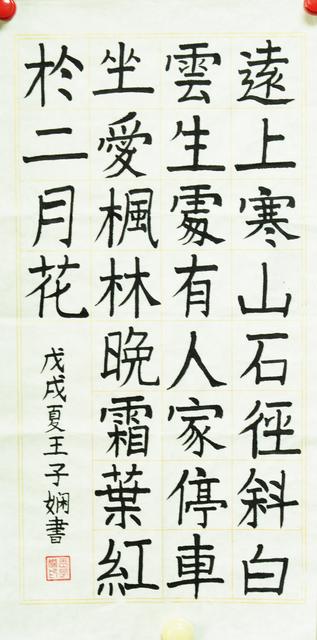 遠上寒山石徑斜白
雲生處有人家停車
坐愛楓林晚霜葉紅
於二月花
戊戌夏王子嫻書